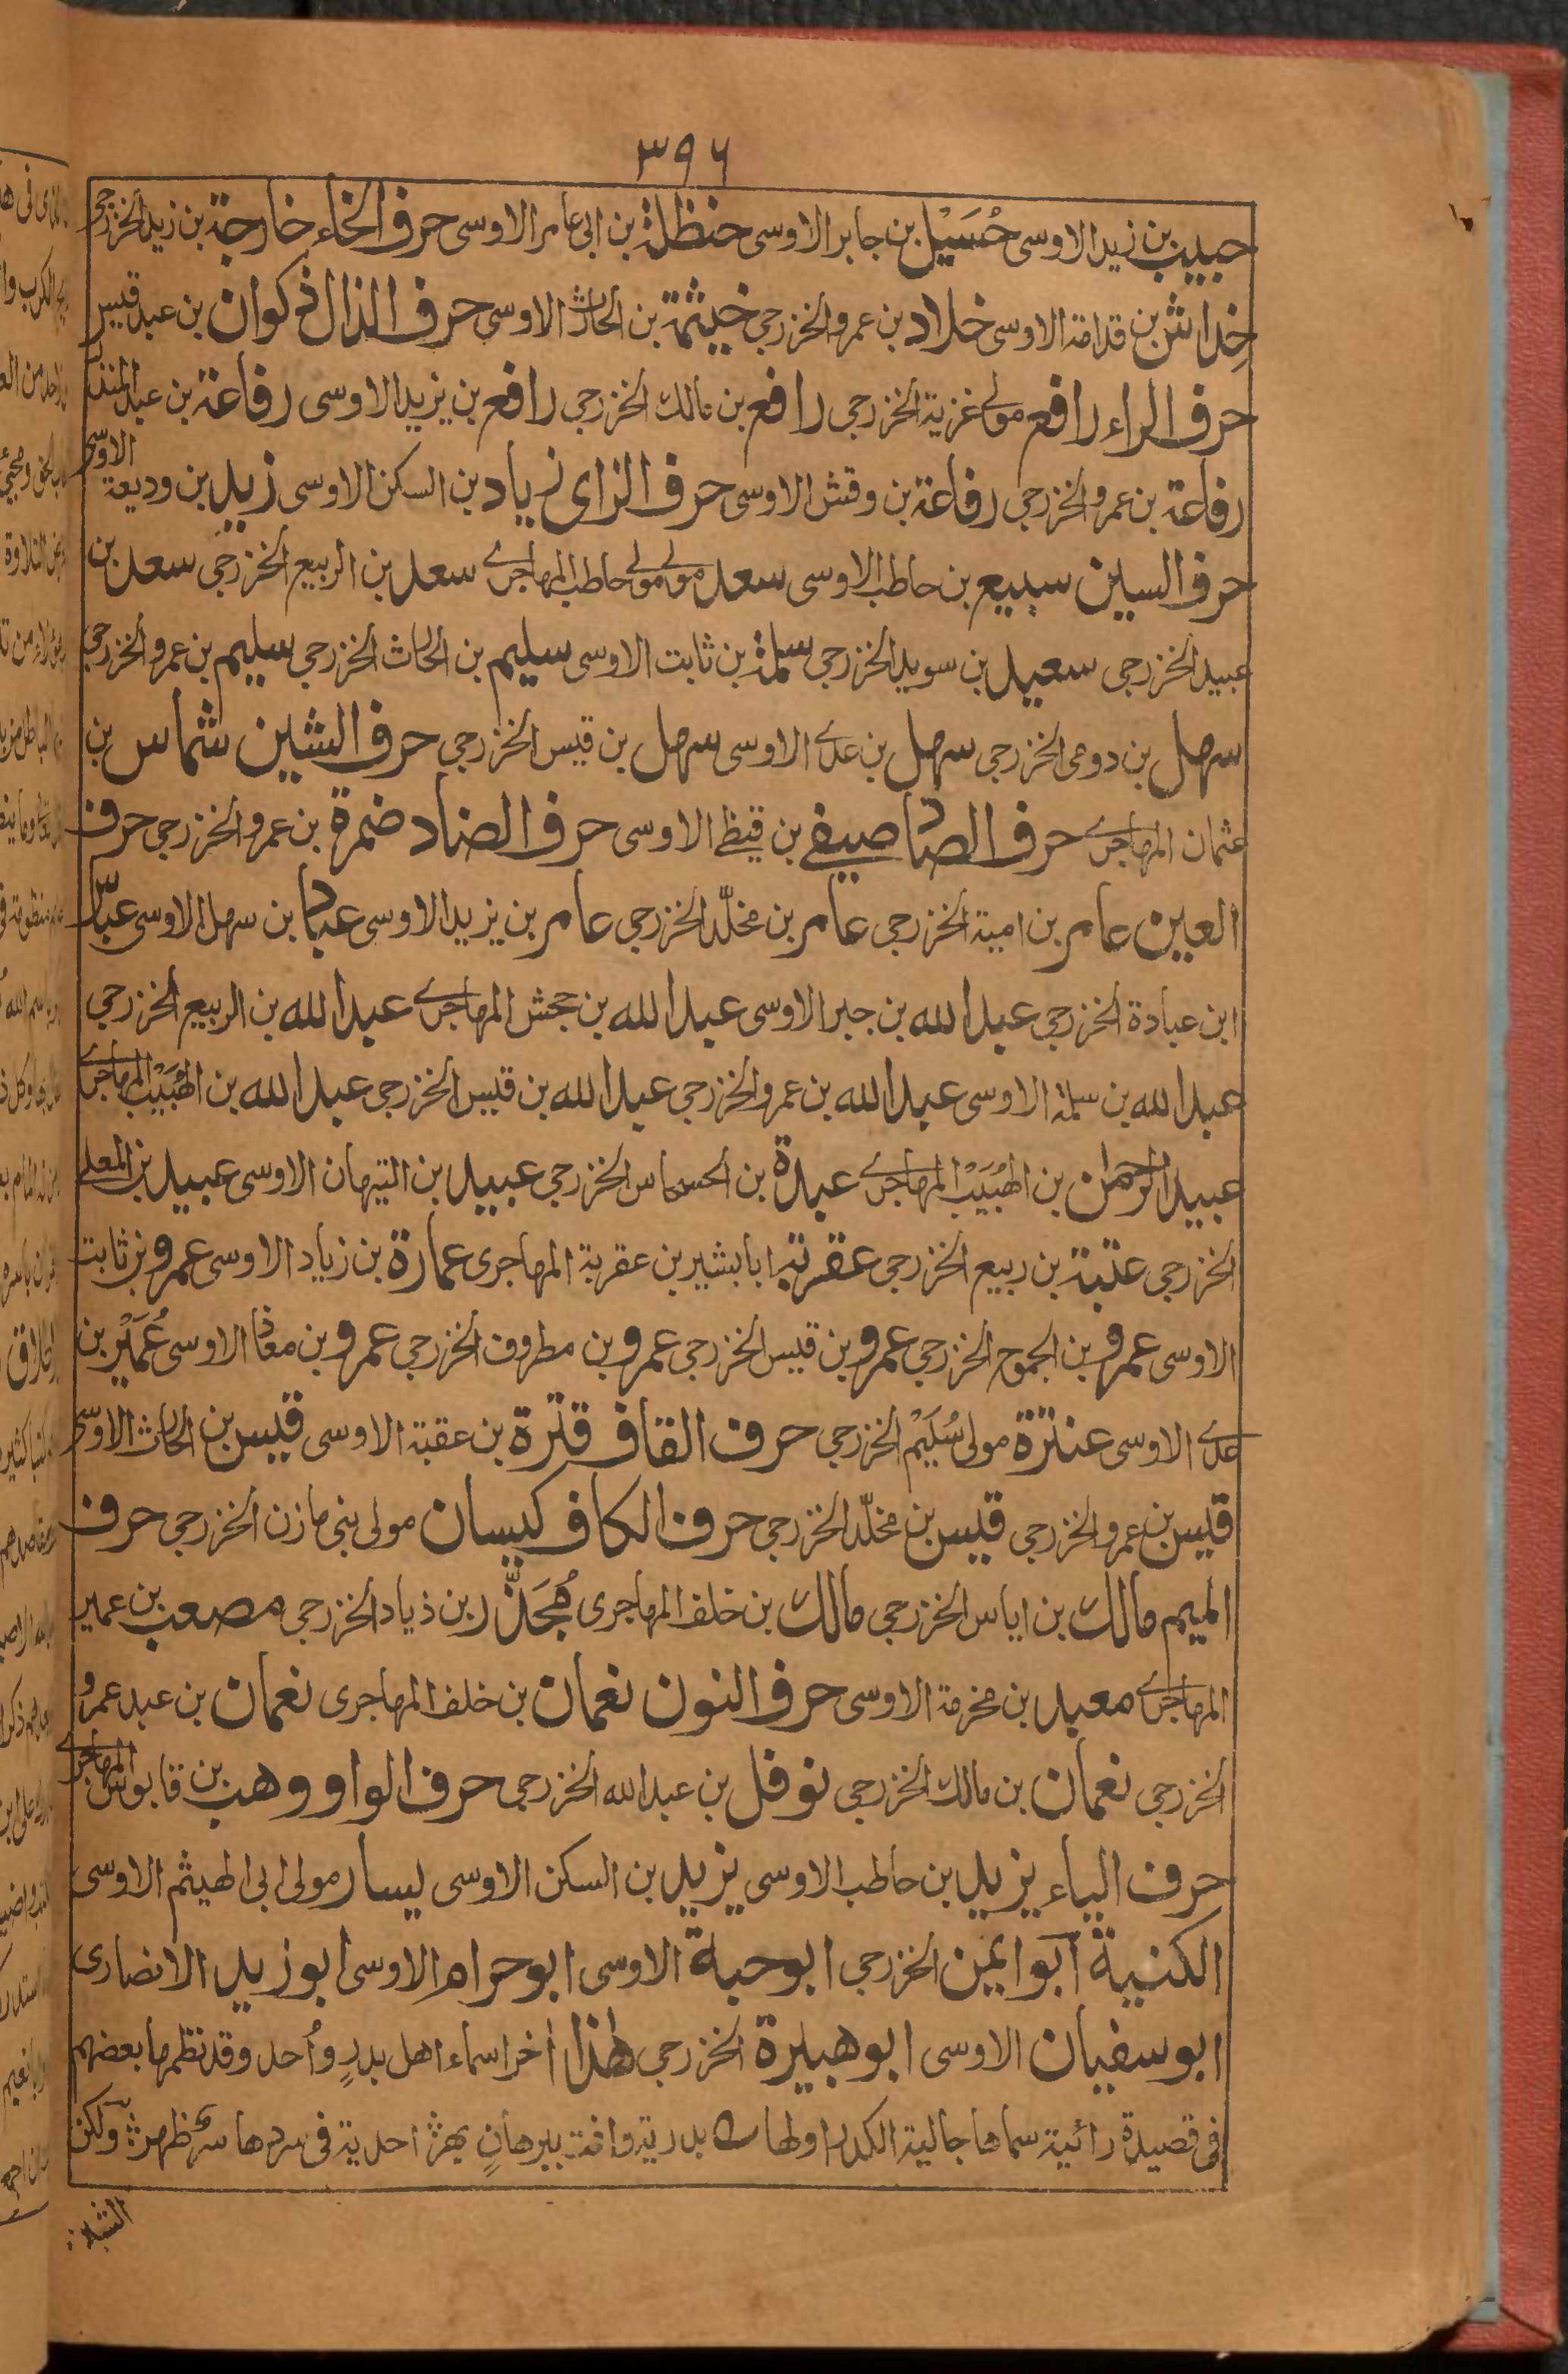 ٣٩٦
حبيب بن زيد الاوسى حُسَيْل بن جابر الاوسى حنظلة بن ابى عامر الاوسى حرف الخاء خارجة بن زيد الخزرجى
خِداش بن قدامة الاوسى خلاد بن عمرو الخزرجى خيثمة بن الحارث الاوسى حرف الذال ذكوان بن عبد قيس
حرف الراء رافع مولى غزية الخزرجى رافع بن مالك الخزرجى رافع بن يزيد الاوسى رفاعة بن عبد المنذر
الاوسى
رفاعة بن عمرو الخزرجى رفاعة بن وقش الاوسى حرف الزاى زياد بن السكن الاوسى زيد بن وديعة
حرف السين سبيع بن حاطب الاوسى سعد مولى مولى حاطب المهاجرى سعد بن الربيع الخزرجى سعد بن
عبيد الخزرجى سعيد بن سويد الخزرجى سلمة بن ثابت الاوسى سليم بن الحارث الخزرجى سليم بن عمرو الخزرجى
سهل بن رومى الخزرجى سهل بن عدى الاوسى سهل بن قيس الخزرجى حرف الشين شماس بن
عثمان المهاجرى حرف الصاد صيفى بن قيظى الاوسى حرف الضاد ضمرة بن عمرو الخزرجى حرف
العين عامر بن امية الخزرجى عامر بن مخلّد الخزرجى عامر بن يزيد الاوسى عباد بن سهل الاوسى عبّاس
ابن عبادة الخزرجى عبد الله بن جبر الاوسى عبد الله بن جحش المهاجرى عبد الله بن الربيع الخزرجى
عبد الله بن سلمة الاوسى عبد الله بن عمرو الخزرجى عبد الله بن قيس الخزرجى عبد الله بن الهُبَيْب المهاجرى
عبيد الرحمان بن الهُبَيْب المهاجرى عبدة بن الحسحاس الخزرجى عبيد بن التيهان الاوسى عبيد بن المعلى
الخزرجى عتبة بن ربيع الخزرجى عقربة ابا بشير بن عقربة المهاجرى عمارة بن زياد الاوسى عمرو بن ثابت
الاوسى عمرو بن الجموح الخزرجى عمرو بن قيس الخزرجى عمرو بن مطروف الخزرجى عمرو بن معاذ الاوسى عُمَيْر بن
عدى الاوسى عنترة مولى سُلَيْم الخزرجى حرف القاف قترة بن عقبة الاوسى قيس بن الحارث الاوسى
قيس بن عمرو الخزرجى قيس بن مخلّد الخزرجى حرف الكاف كيسان مولى بنى مازن الخزرجى حرف
الميم مالك بن اياس الخزرجى مالك بن خلف المهاجرى مُجَذَّر بن ذياد الخزرجى مصعب بن عمير
المهاجرى معبد بن مخرمة الاوسى حرف النون نعمان بن خلف المهاجرى نعمان بن عبد عمرو
الخزرجى نعمان بن مالك الخزرجى نوفل بن عبد الله الخزرجى حرف الواو وهب بن قابوس المهاجرى
حرف الياء يزيد بن حاطب الاوسى يزيد بن السكن الاوسى يسار مولى ابى الهيثم الاوسى
الكنية ابو ايمن الخزرجى ابو حبة الاوسى ابو حرام الاوسى ابو زيد الانصارى
ابو سفيان الاوسى ابو هبيرة الخزرجى هٰذا اٰخر اسماء اهل بدرٍ وأُحد وقد نظمها بعضهم
فى قصيدة رائية سماها جالية الكدر اولها بدرية وافت ببرهانٍ بهرْ احدية فى سردها سرٌّ ظهرْ ولكن